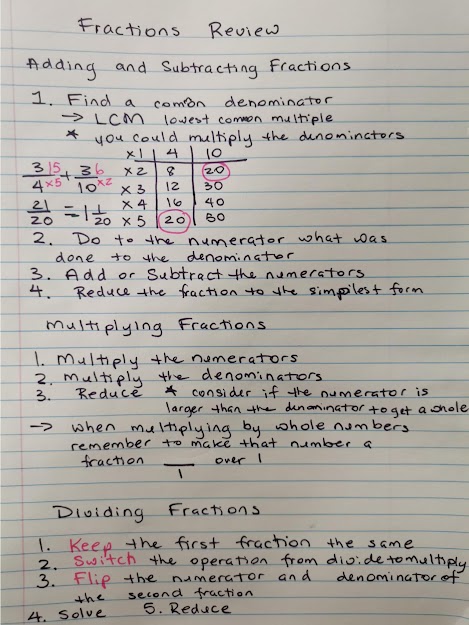 Fractions Review
Adding and Subtracting Fractions
1. Find a common denominator
→ LCM lowest common multiple
* you could multiply the denominators
x1 | 4 | 10
3 15 + 3 6 x2 | 8 | 20
4 x5 10 x2 x3 | 12 | 30
21 = 1 1 x4 | 16 | 40
20 20 x5 | 20 | 50
2. Do to the numerator what was
done to the denominator
3. Add or Subtract the numerators
4. Reduce the fraction to the simplest form
Multiplying Fractions
1. Multiply the numerators
2. Multiply the denominators
3. Reduce * consider if the numerator is
larger than the denominator to get a whole
→ when multiplying by whole numbers
remember to make that number a
fraction __ over 1
1
Dividing Fractions
1. Keep the first fraction the same
2. Switch the operation from divide to multiply
3. Flip the numerator and denominator of
the second fraction
4. Solve 5. Reduce